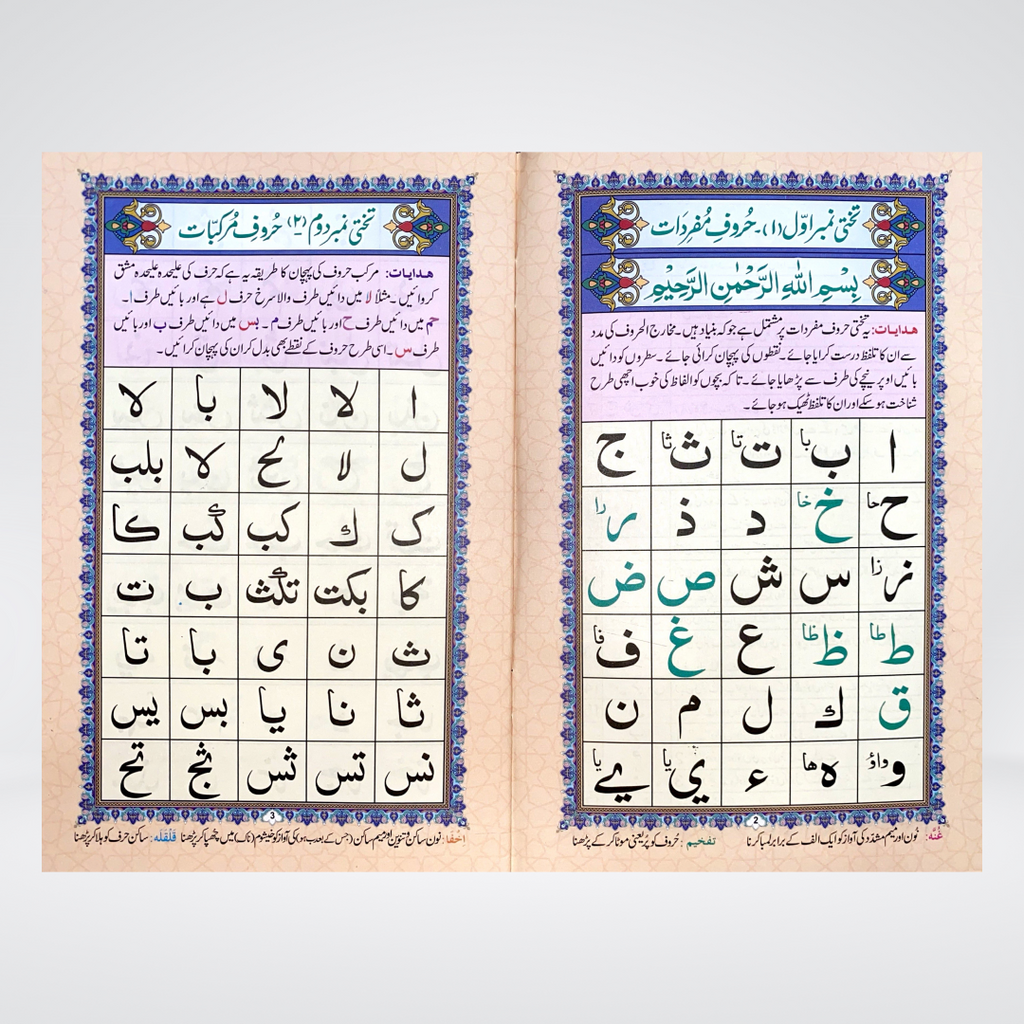 تختی نمبر اوّل (۱)۔ حُروفِ مُفردَات
بِسْمِ اللّٰهِ الرَّحْمٰنِ الرَّحِيْمِ
هدایات: یہ تختی حروف مفردات پر مشتمل ہے جو کہ بنیاد ہیں۔ مخارج الحروف کی مدد
سے ان کا تلفظ درست کرایا جائے۔ نقطوں کی پہچان کرائی جائے۔ سطروں کو دائیں
بائیں اوپر نیچے کی طرف سے پڑھایا جائے۔ تا کہ بچوں کو الفاظ کی خوب اچھی طرح
شناخت ہو سکے اور ان کا تلفظ ٹھیک ہو جائے۔
ا ب با ت تا ث ثا ج
ح حا خ خا د ذ ر را
ز زا س ش ص ض
ط طا ظ ظا ع غ ف فا
ق ك ل م ن
و واؤ ه ها ء ي يا ے يا
2
غُنَّه: نُون اور میم مشدّد کی آواز کو ایک الف کے برابر لمبا کرنا تفخیم: حُروف کو پُر یعنی موٹا کر کے پڑھنا
تختی نمبر دوم (۲) حُروفِ مُرکبّات
هدایات: مرکب حروف کی پہچان کا طریقہ یہ ہے کہ حرف کی علیحدہ علیحدہ مشق
کروائیں۔ مثلاً لا میں دائیں طرف والا سرخ حرف ل ہے اور بائیں طرف ا۔
حم میں دائیں طرف ح اور بائیں طرف م۔ بس میں دائیں طرف ب اور بائیں
طرف س۔ اسی طرح حروف کے نقطے بھی بدل کر ان کی پہچان کرائیں۔
ا لا لا با لا
ل لا لح لا بلب
ک ك كب كب كا
كا بكت تكث ب ت
ث ن ى با تا
ثا نا يا بس يس
نس تس ثس نج تح
3
اِخفا: نون ساکن و تنوین اور میم ساکن (جس کے بعد ب ہو) کی آواز کو خیشوم (ناک) میں چھپا کر پڑھنا قلقله: ساکن حرف کو ہلا کر پڑھنا